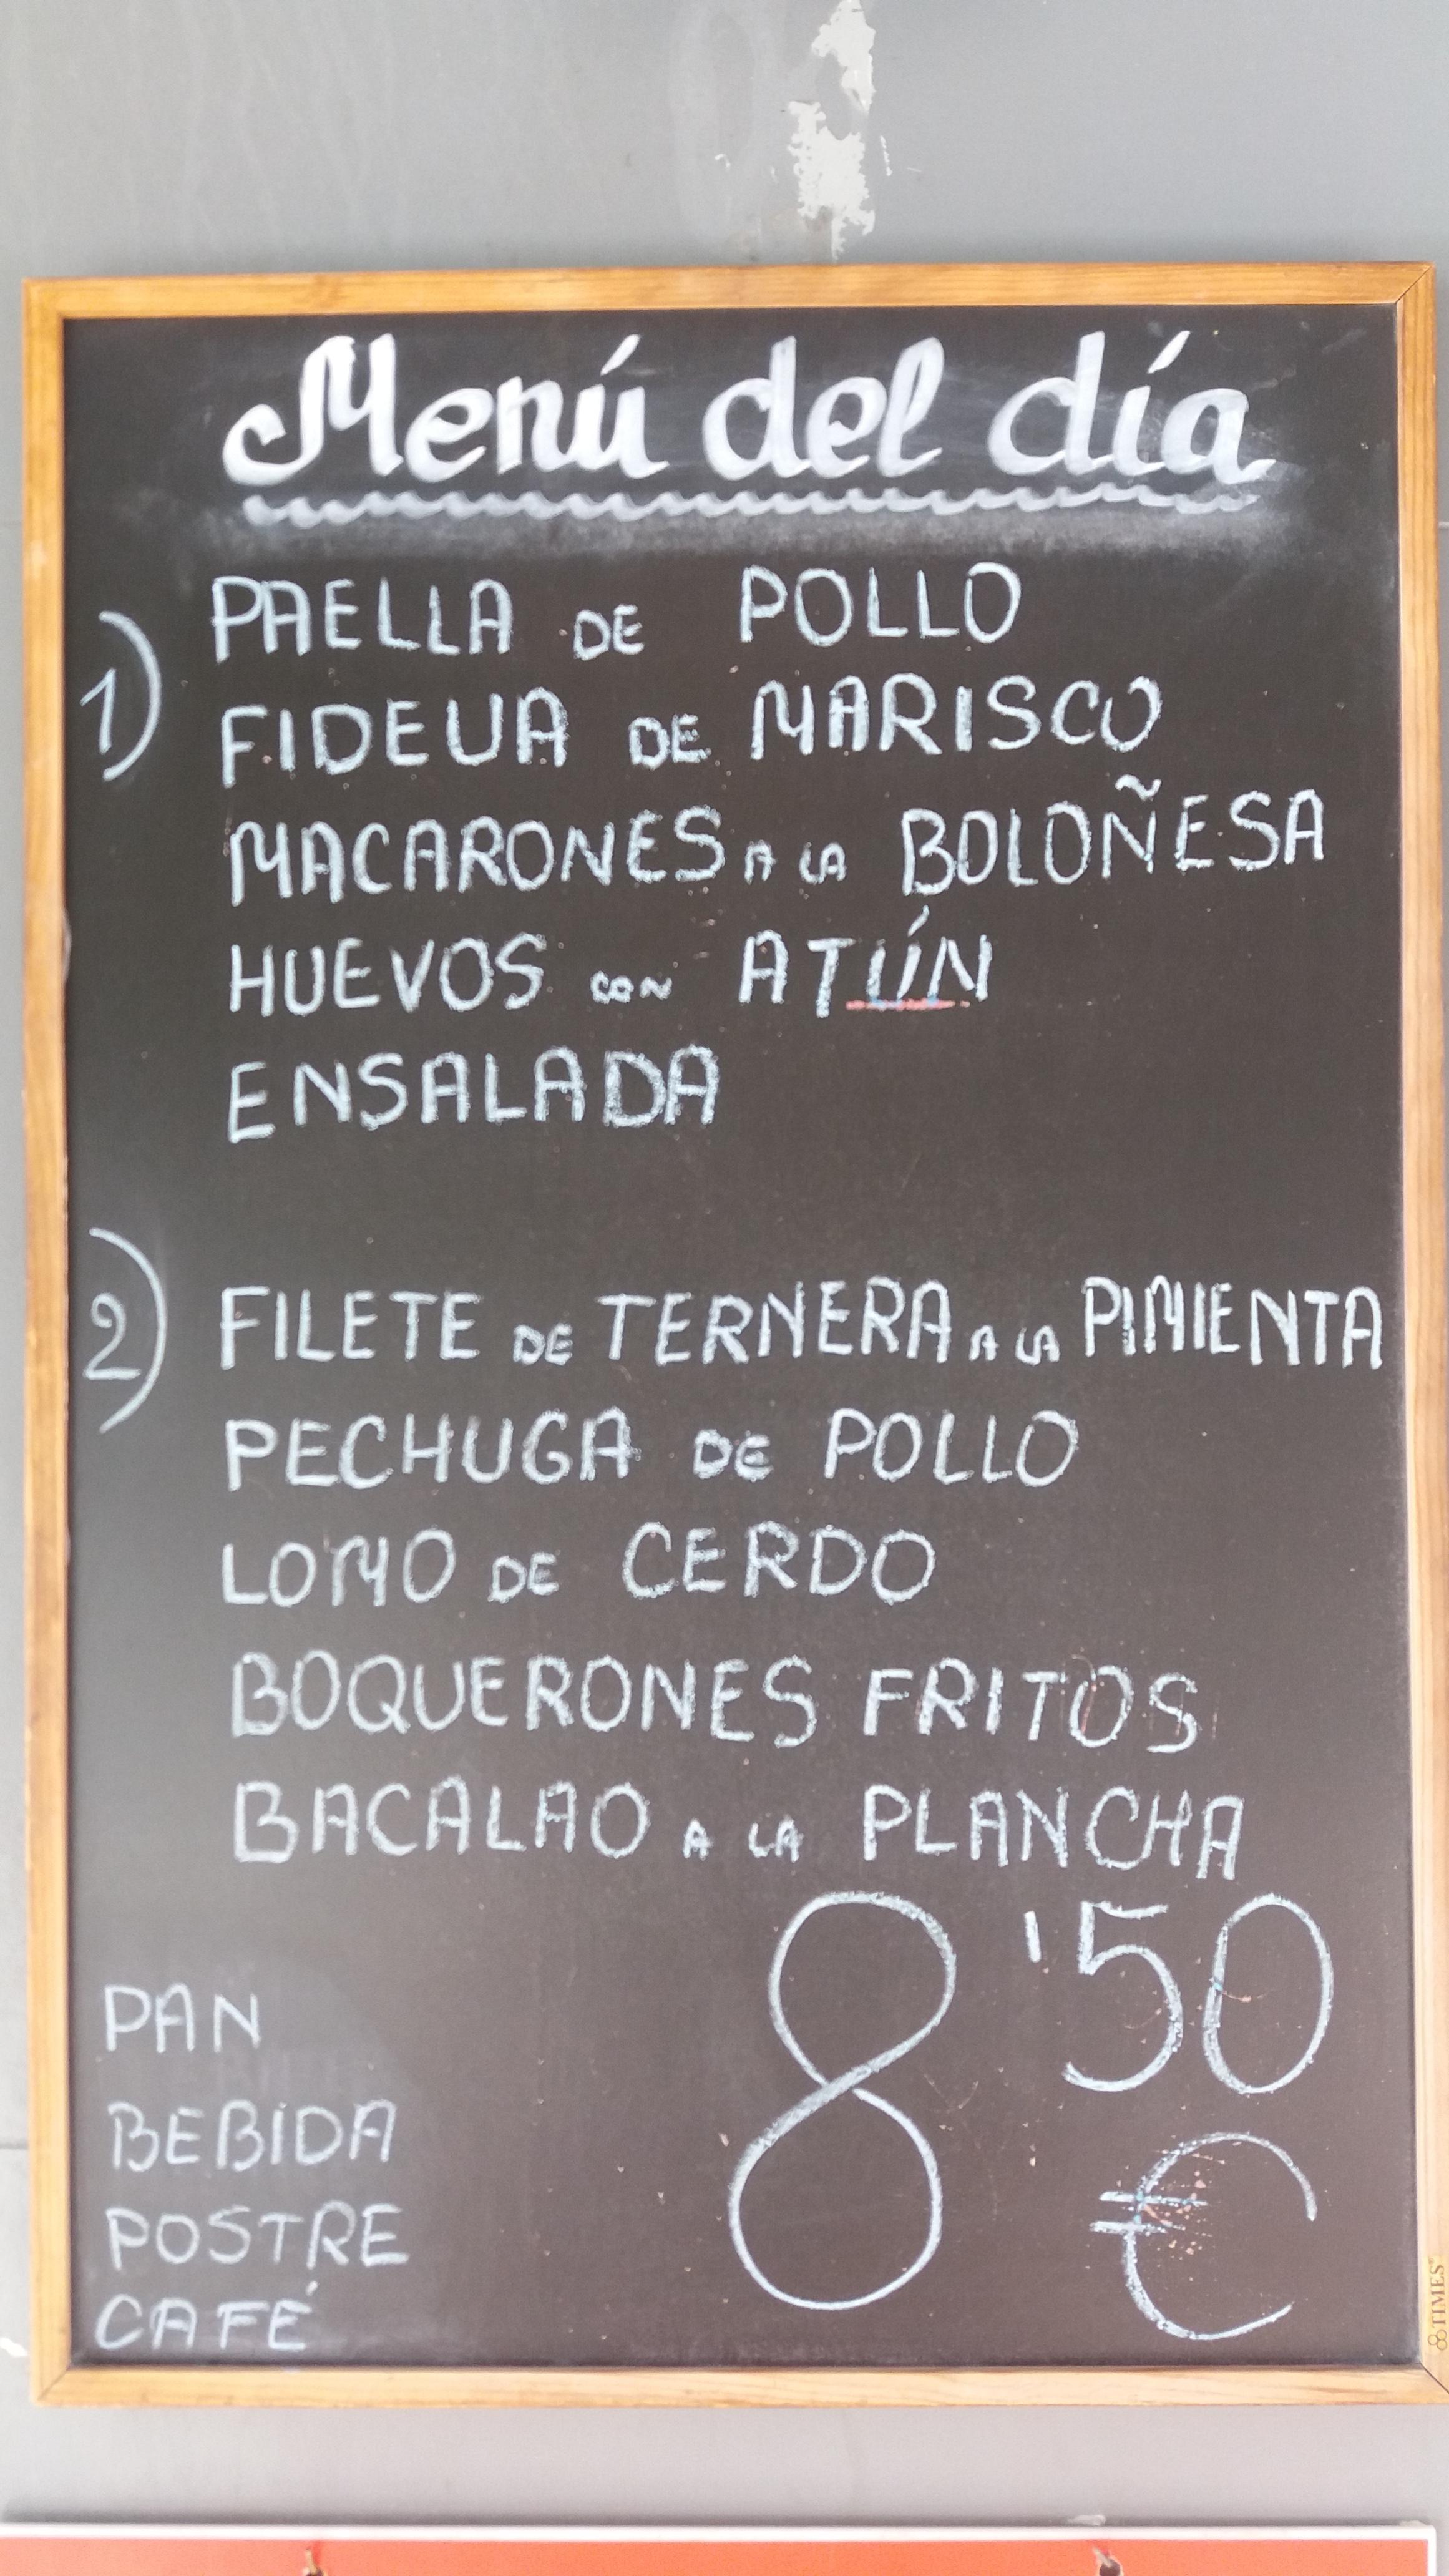 Menú del día
1) PAELLA DE POLLO
FIDEUA DE MARISCO
MACARONES A LA BOLOÑESA
HUEVOS CON ATÚN
ENSALADA
2) FILETE DE TERNERA A LA PIMIENTA
PECHUGA DE POLLO
LOMO DE CERDO
BOQUERONES FRITOS
BACALAO A LA PLANCHA
8'50 €
PAN
BEBIDA
POSTRE
CAFÉ
TIMES